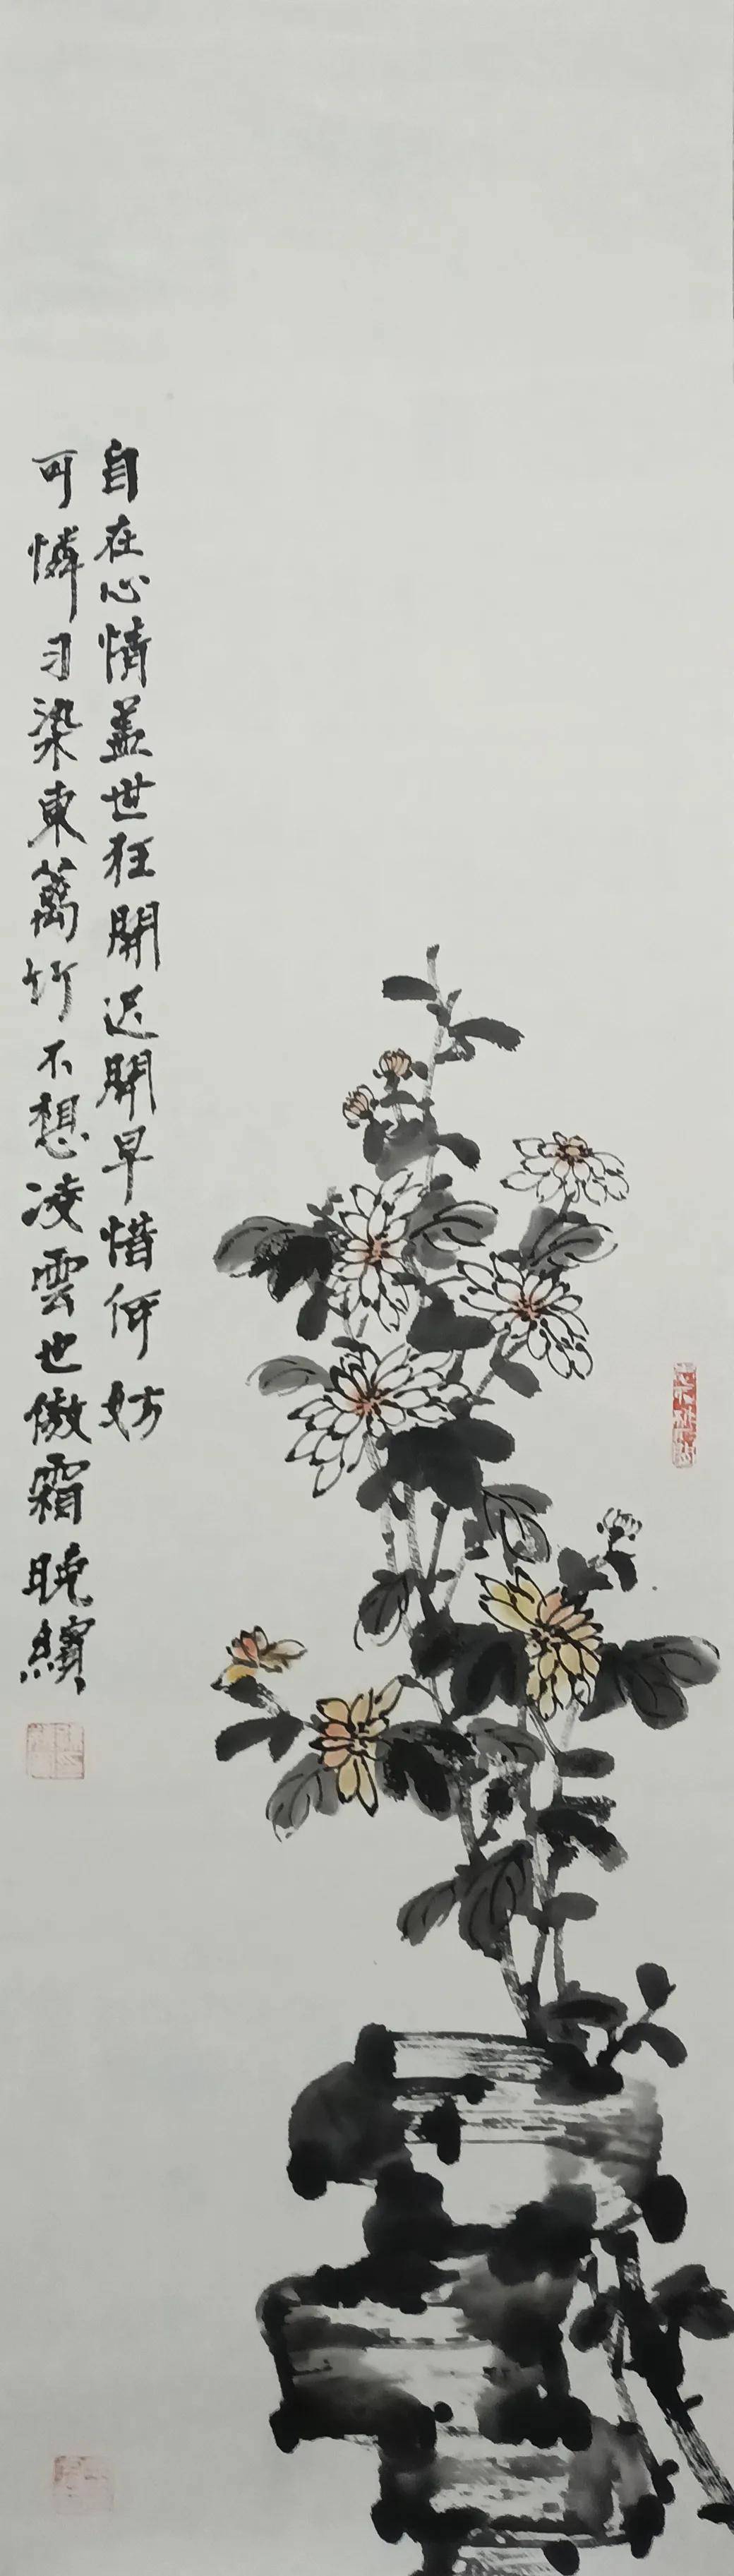 自在心情盖世狂開迟開早惜何妨
可憐习染東篱竹不想凌雲也傲霜 晓繽